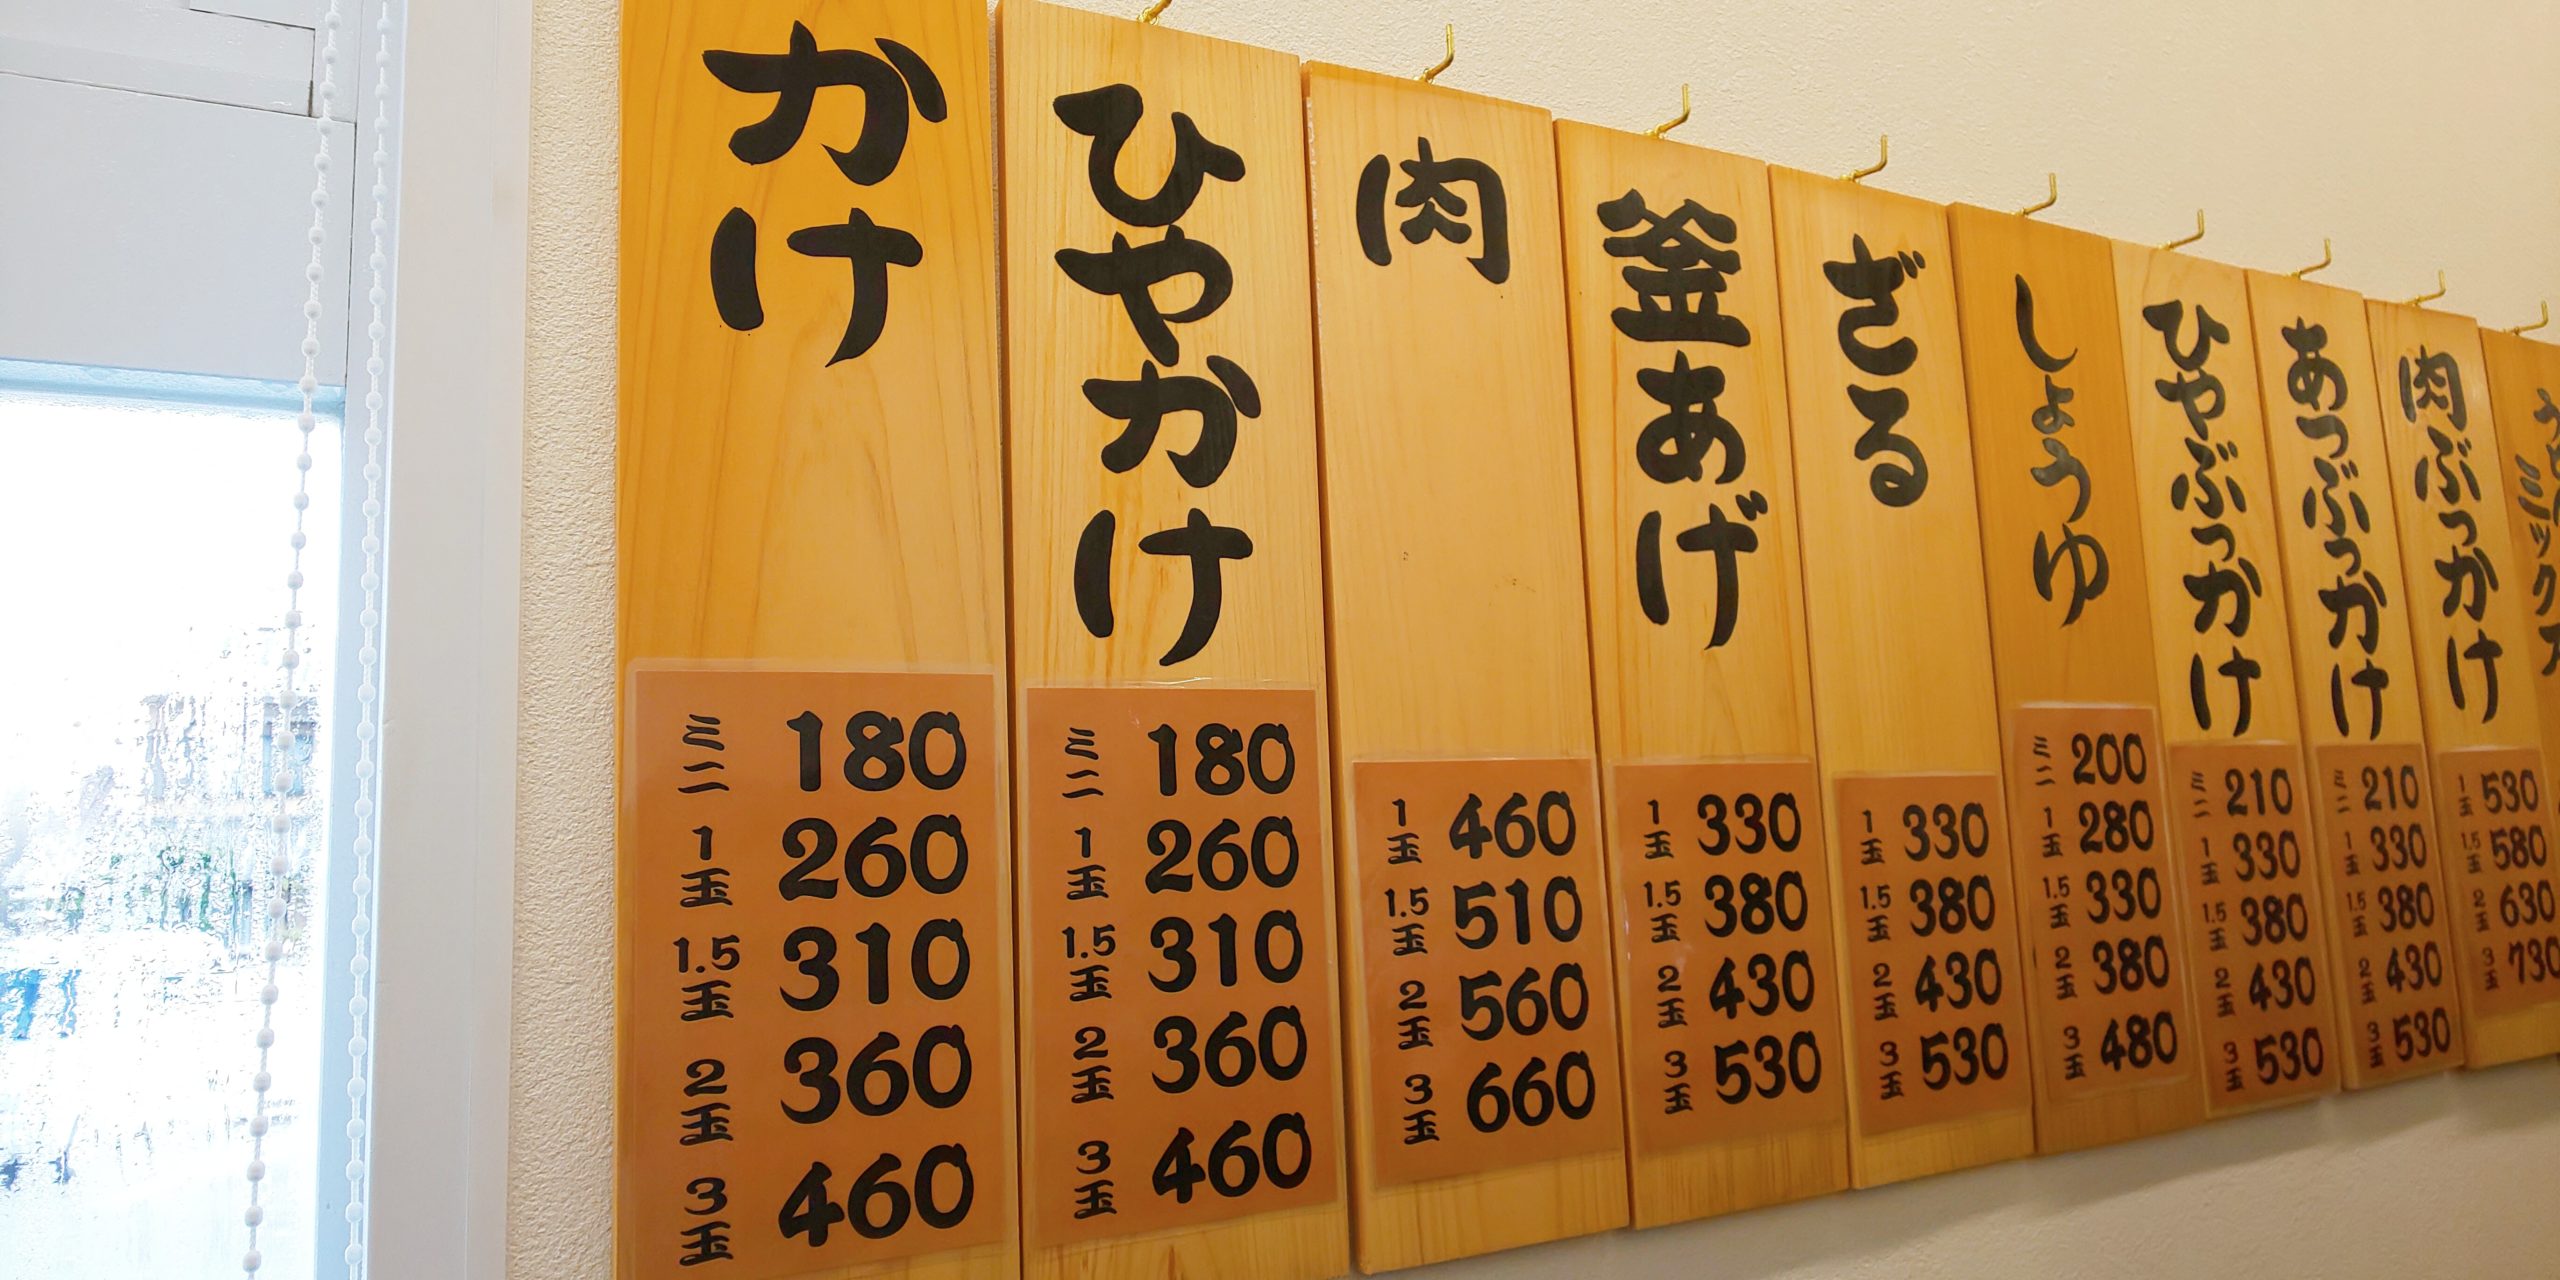 かけ
ミニ 180
1玉 260
1.5玉 310
2玉 360
3玉 460
ひやかけ
ミニ 180
1玉 260
1.5玉 310
2玉 360
3玉 460
肉
1玉 460
1.5玉 510
2玉 560
3玉 660
釜あげ
1玉 330
1.5玉 380
2玉 430
3玉 530
ざる
1玉 330
1.5玉 380
2玉 430
3玉 530
しょうゆ
ミニ 200
1玉 280
1.5玉 330
2玉 380
3玉 480
ひやぶっかけ
ミニ 210
1玉 330
1.5玉 380
2玉 430
3玉 530
あつぶっかけ
ミニ 210
1玉 330
1.5玉 380
2玉 430
3玉 530
肉ぶっかけ
1玉 530
1.5玉 580
2玉 630
3玉 730
ミックス